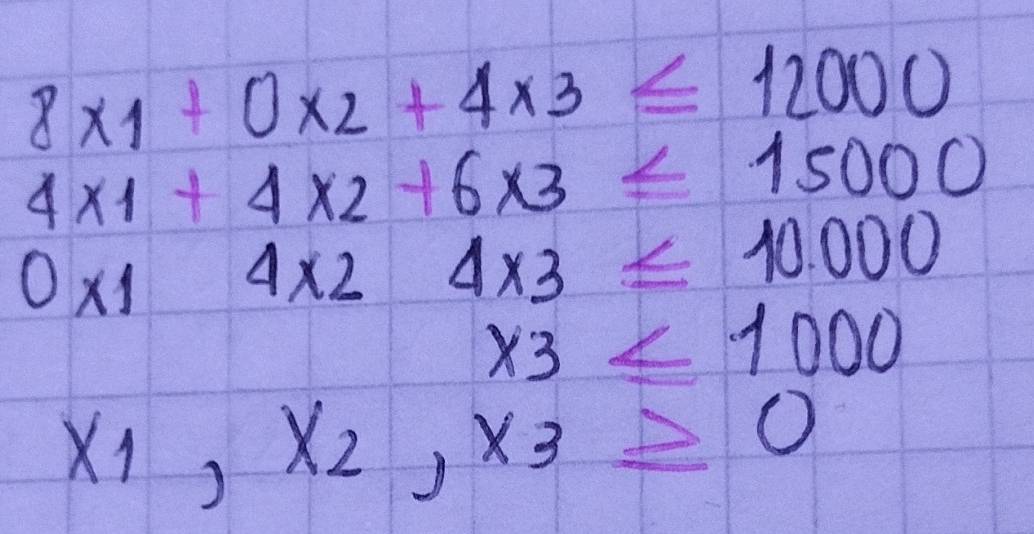 8x1 + 0x2 + 4x3 ≤ 12000
4x1 + 4x2 + 6x3 ≤ 15000
0x1 4x2 4x3 ≤ 10.000
x3 ≤ 1000
x1, x2, x3 ≥ 0